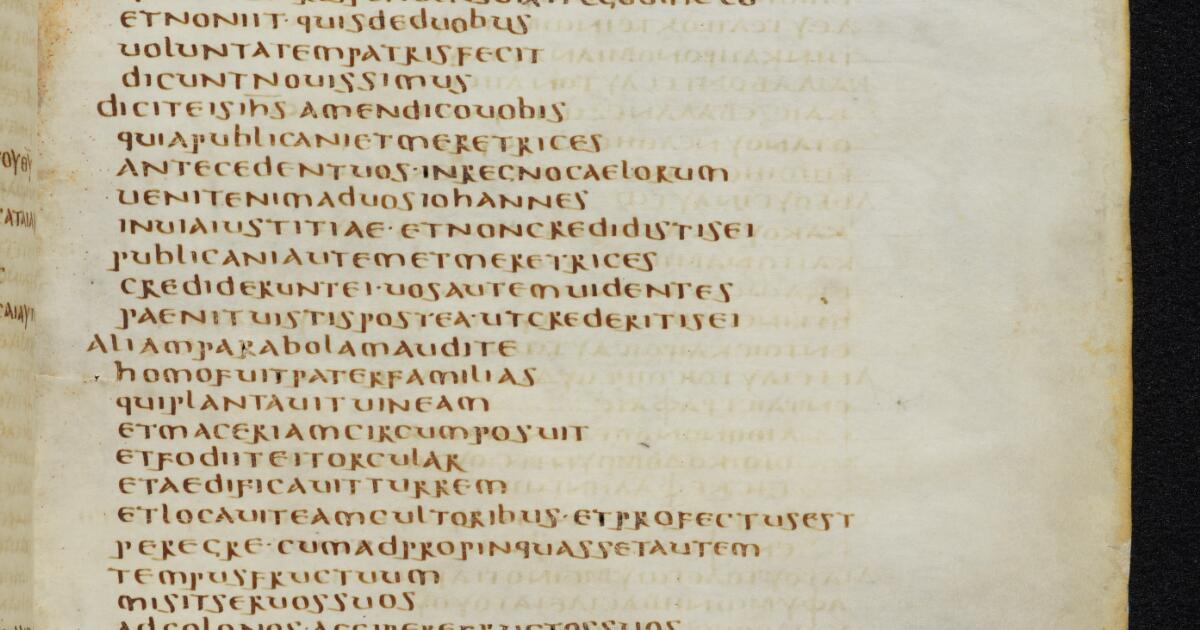 ETNONIIT· QUISDEDUOBUS
UOLUNTATEMPATRISFECIT
DICUNTNOUISSIMUS
DICITEISIHS AMENDICOUOBIS
QUIAPUBLICANIETMERETRICES
ANTECEDENTUOS·INREGNOCAELORUM
UENITENIMADUOSIOHANNES
INUIAIUSTITIAE· ETNONCREDIDISTISEI
PUBLICANIAUTEMETMERETRICES
CREDIDERUNTEI·UOSAUTEMUIDENTES
PAENITUISTISPOSTEA·UTCREDERITISEI
ALIAMPARABOLAMAUDITE
HOMOFUITPATERFAMILIAS
QUIPLANTAUITUINEAM
ETMACERIAMCIRCUMPOSUIT
ETFODIITEITORCULAR
ETAEDIFICAUITTURREM
ETLOCAUITEAMCULTORIBUS· ETPROFECTUSEST
PEREGRE· CUMADPROPINQUASSETAUTEM
TEMPUSFRUCTUUM
MISITSERUOSSUOS
ADCOLONOS·ACCIPEREFRUCTOSSUOS